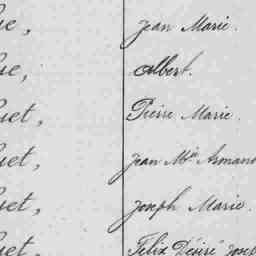 ue, Jean Marie.
ue, Albert.
uet, Pierre Marie.
uet, Jean Mie Armand
uet, Joseph Marie.
uet, Félix Désiré Jose